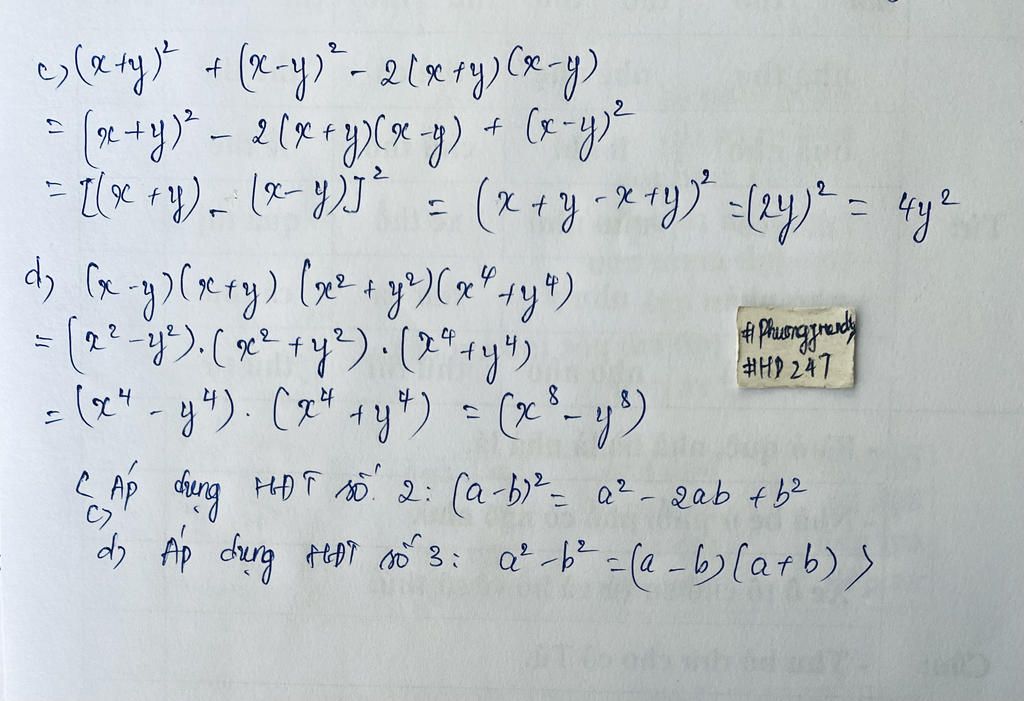 c) (x+y)² + (x-y)² - 2(x+y)(x-y)
= (x+y)² - 2(x+y)(x-y) + (x-y)²
= [(x+y) - (x-y)]² = (x+y-x+y)² = (2y)² = 4y²
d) (x-y)(x+y)(x²+y²)(x⁴+y⁴)
= (x²-y²).(x²+y²).(x⁴+y⁴)
= (x⁴-y⁴).(x⁴+y⁴) = (x⁸-y⁸)
#Phuonggrandy
#HD247
< c) Áp dụng HĐT số 2: (a-b)² = a² - 2ab + b²
d) Áp dụng HĐT số 3: a² - b² = (a-b)(a+b) >